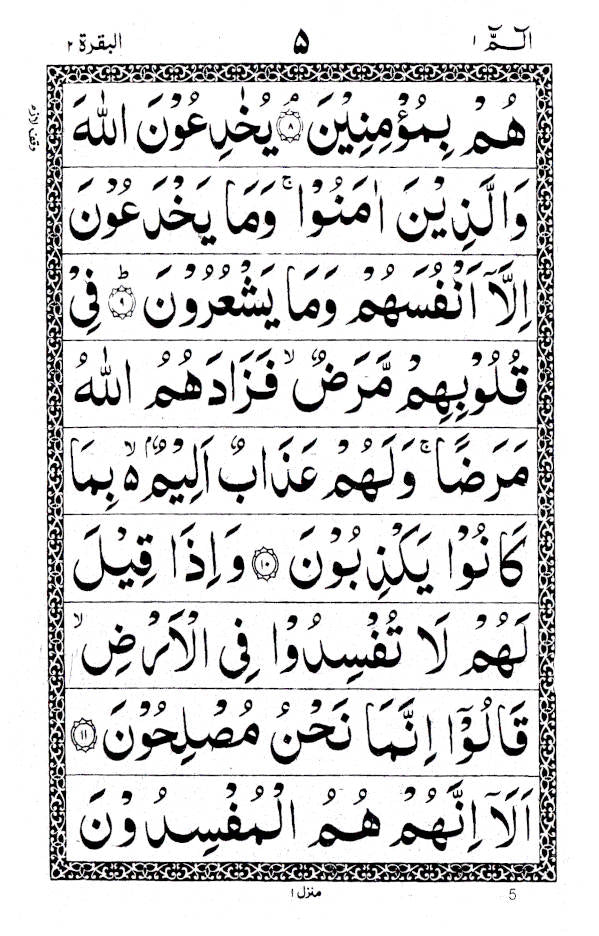 الٓمّٓ ١ ۵ البقرة ٢
هُمْ بِمُؤْمِنِيْنَ ۘ ﴿٨﴾ يُخٰدِعُوْنَ اللّٰهَ
وقف لازم
وَالَّذِيْنَ اٰمَنُوْا ۚ وَمَا يَخْدَعُوْنَ
اِلَّاۤ اَنْفُسَهُمْ وَمَا يَشْعُرُوْنَ ؕ ﴿٩﴾ فِيْ
قُلُوْبِهِمْ مَّرَضٌ ۙ فَزَادَهُمُ اللّٰهُ
مَرَضًا ۚ وَلَهُمْ عَذَابٌ اَلِيْمٌۢ ۬ۙ ۵ بِمَا
كَانُوْا يَكْذِبُوْنَ ﴿١٠﴾ وَاِذَا قِيْلَ
لَهُمْ لَا تُفْسِدُوْا فِي الْاَرْضِ ۙ
قَالُوْۤا اِنَّمَا نَحْنُ مُصْلِحُوْنَ ﴿١١﴾
اَلَاۤ اِنَّهُمْ هُمُ الْمُفْسِدُوْنَ
منزل ١ 5